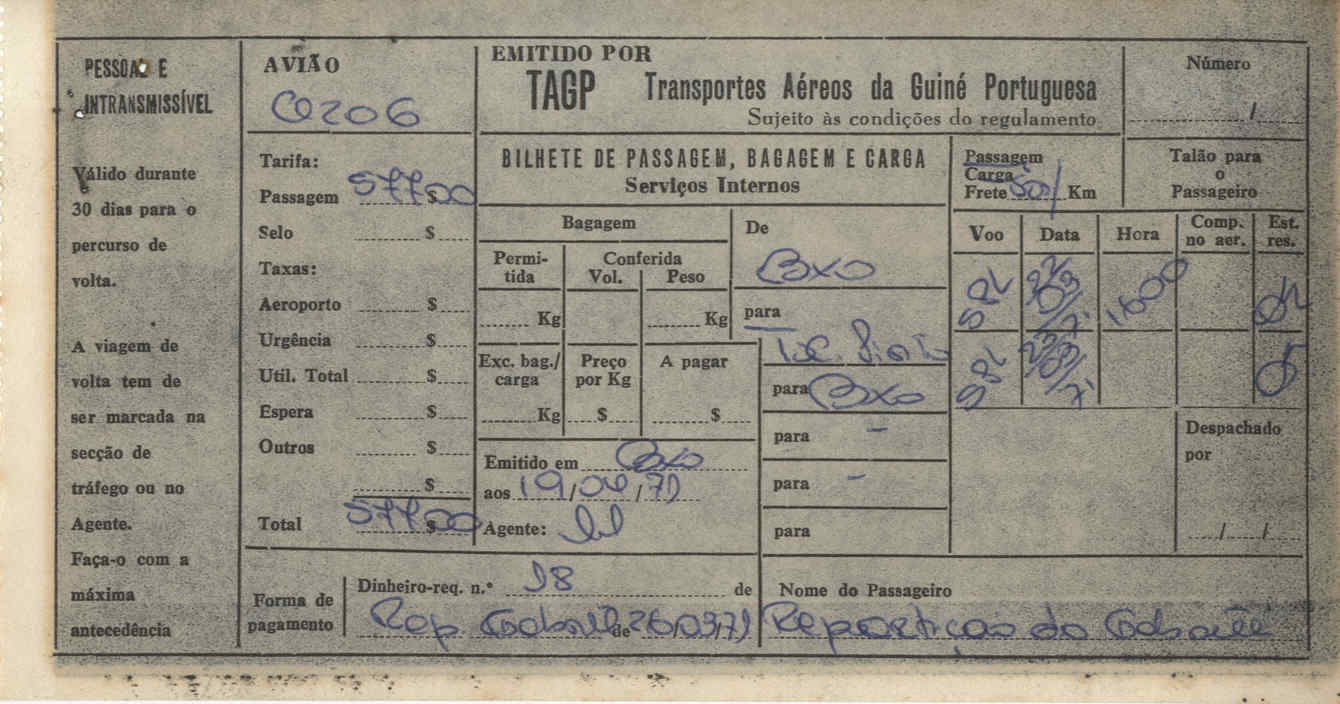 PESSOAL E
INTRANSMISSÍVEL
Válido durante
30 dias para o
percurso de
volta.
A viagem de
volta tem de
ser marcada na
secção de
tráfego ou no
Agente.
Faça-o com a
máxima
antecedência
AVIÃO
CQ206
Tarifa:
Passagem 577$00
Selo $
Taxas:
Aeroporto $
Urgência $
Util. Total $
Espera $
Outros $
$
Total 577$00
EMITIDO POR
TAGP Transportes Aéreos da Guiné Portuguesa
Sujeito às condições do regulamento
BILHETE DE PASSAGEM, BAGAGEM E CARGA
Serviços Internos
Bagagem
Permi-
tida
Conferida
Vol. Peso
Kg Kg
Exc. bag./
carga
Preço
por Kg
A pagar
Kg $ $
Emitido em Bxo
aos 19/04/71
Agente:
De
Bxo
para
para Bxo
para -
para -
para
Número
/
Passagem
Carga
Frete Km
Talão para
o
Passageiro
Voo Data Hora Comp. no aer. Est. res.
SPL 22/03/71 1600 OK
SPL 23/03/71 OK
Despachado
por
/ /
Forma de
pagamento
Dinheiro-req. n.º 98 de
Rep. Gabinete de 26/03/71
Nome do Passageiro
Repartição do Gabinete